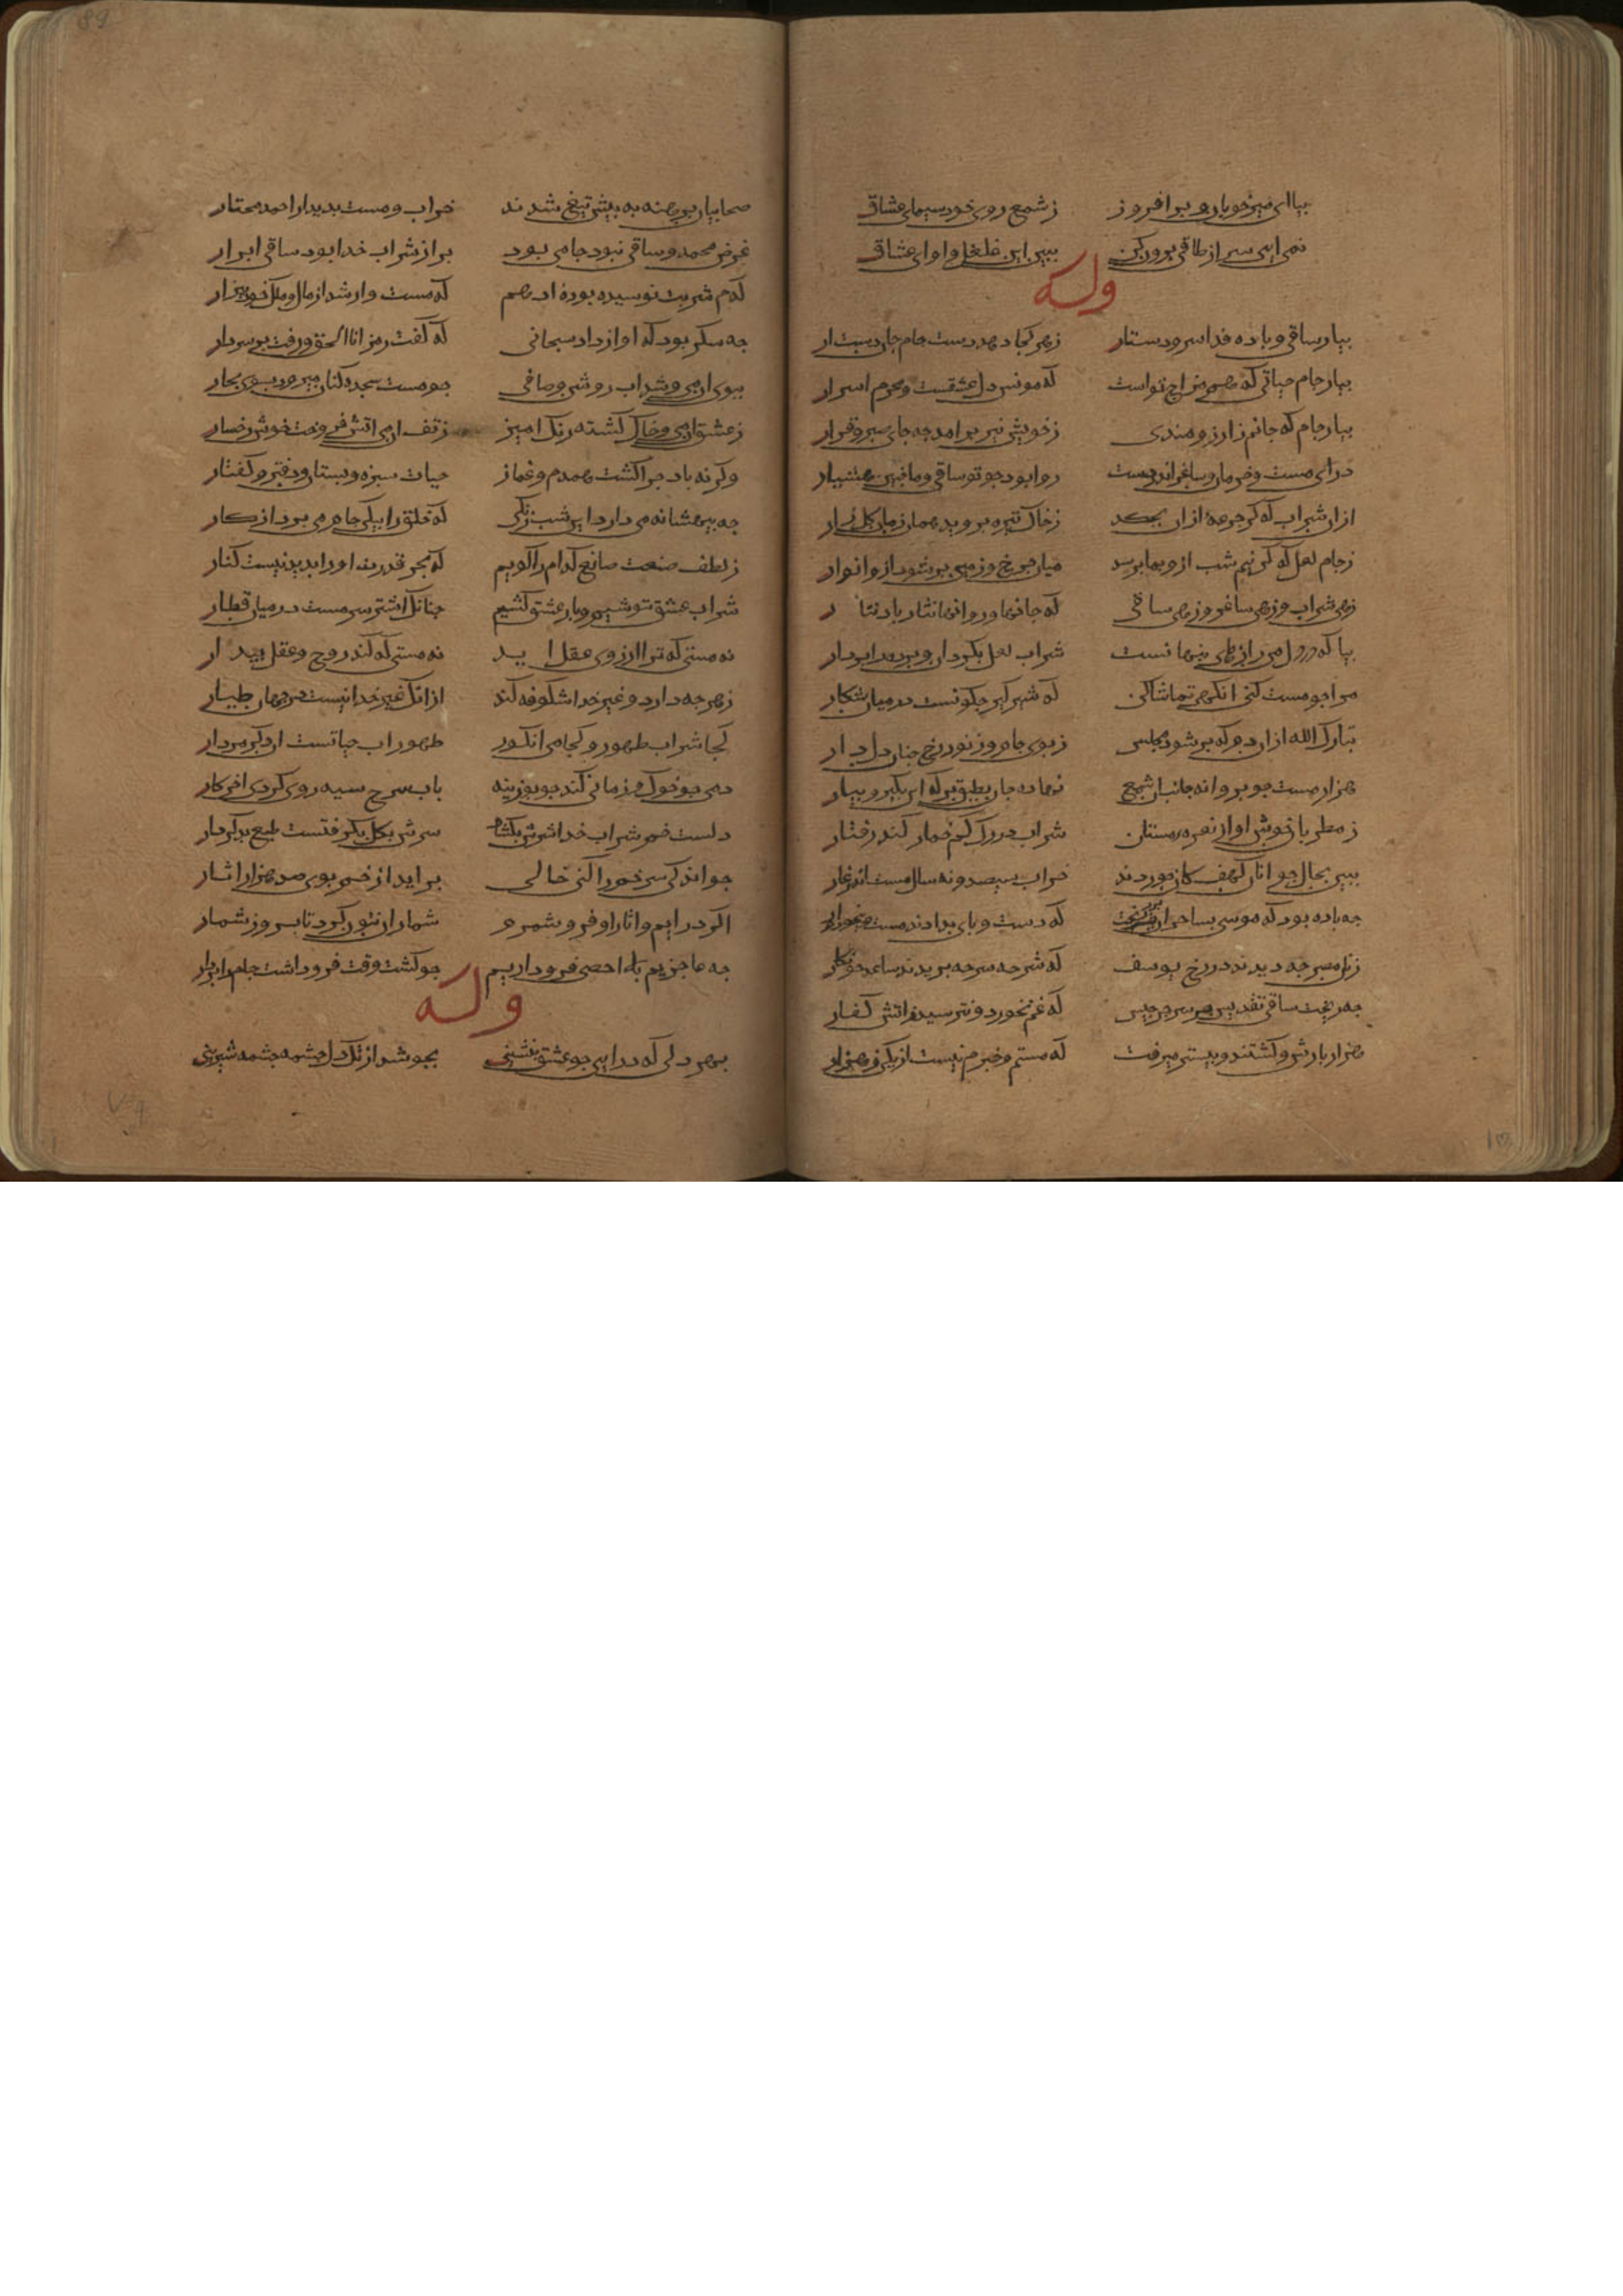 بیا ای میر خوبان و برافروز ز شمع روی خود سیمای عشاق
نمی ایی سر از طاقی برون کن ببین این غلغل و اوای عشاق
وله
بیار ساقی و باده فدا سر و دستار ز هر کجا دهد دست جام جان دست ار
بیار جام حیاتی که هم مزاج تواست که مونس دل عشقست و محرم اسرار
بیار جام که جانم ز ارزومندی ز خویش نیز برامد جه جای صبر و قرار
درای مست و خرامان و ساغر اندر دست روا بود جو تو ساقی و ما جنین هشیار
از ان شراب که کر جرعهٔ از ان بجکد ز خاک تیره بروید همان زمان کلزار
ز جام لعل که کر نیم شب ازو بما برسد میان جرخ و زمین بر شود ازو انوار
زهی شراب و زهی ساغر و زهی ساقی که جانها و روانها نثار باد نثار
بیا که در دل من رازهای بنهانست شراب لعل بکردان و برده ابردار
مرا جو مست کنی انکهی تماشا کن که شیر کیر جکونست در میان شکار
تبارک الله از ان دم که بر شود مجلس ز بوی جام و ز نور رخ جنان دلدار
هزار مست جو بروانه جانب ان شمع نهاده جان بطبق بر که این بکیر و بیار
ز مطربان خوش اواز نعره مستان شراب در رک خم خمار کند رفتار
ببین بحال جوانان کهف کان خوردند خراب سیصد و نه سال مست اندر غار
جه باده بود که موسی بساحران بر ریخت که دست و بای بدادند مست
زنان مصر جه دیدند در رخ یوسف که شرحه شرحه بریدند ساعد جو نکار
جه ریخت ساقی تقدیس بر سر جرجیس که غم نخورد و نترسید ز اتش کفار
هزار بارش و کشتند و بیشتر میرفت که مستم و خبرم نیست از یکی و هزار
صحابیان برهنه به بیش تیغ شدند خراب و مست بدیدار احمد مختار
غرض محمد و ساقی نبود جامی بود بر از شراب خدا بود ساقی ابرار
کدام شربت نوشیده بوده ادهم که مست وار شد از مال و ملک خود بیزار
جه سکر بود که اواز داد سبحانی که کفت رمز انا الحق و رفت بر سر دار
ببوی ان می و شد اب روشن و صافی جو مست سجده کنان میرود بسوی بحار
ز عشق این می و خاک کشته رنک امیز ز تف این می اتش فروخت خوش رخسار
وکر نه باد جرا کشت همدم و غماز حیات سبزه و بستان و دفتر و کفتار
جه بیهشانه می دارد این شب زنکی که خلق را بیکی جام می برد از کار
ز لطف صنعت صانع کدام را کویم که بحر قدرت او را بدید نیست کنار
شراب عشق نوشیم و بار عشق کشیم جنانک اشتر سرمست در میان قطار
نه مستی که ترا ارزوی عقل اید نه مستی که کند روح و عقل بیدار
ز هر جه دارد و غیر خدا شکوفه کند از انک غیر خدا نیست در جهان طیار
کجا شراب طهور و کجا می انکور طهور اب حیاتست ان دکر مردار
دمی جو خوک و زمانی کند جو بوزینه باب سرخ سیه روی کردی اخر کار
دلست خم شراب خدا سرش بکشا سرش بکل بکرفتست طبع بد کردار
جو اندکی سر خم را کنی خالی براید از خم بوی صد هزار اثار
اکر درایم و اثار او فرو شمرم شمار ان نتون کرد تا بروز شمار
جه عاجزیم بلا احصی فرود اریم جو کشت وقت فرو داشت جام ابردار
وله
بهر دلی که درایی جو عشق بنشینی بجوشد از تک دل جشمه جشمه شیرینی